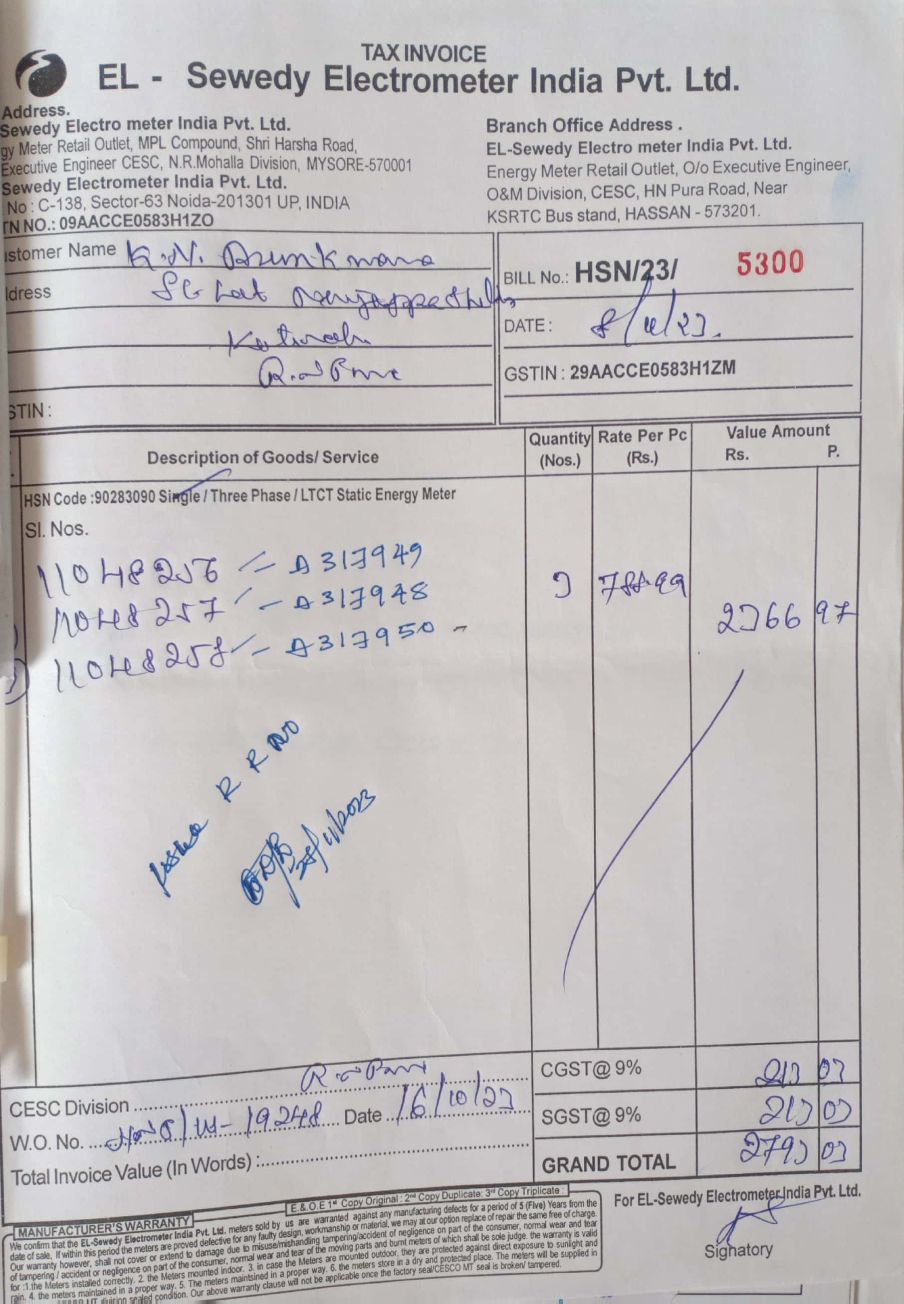 TAX INVOICE
EL - Sewedy Electrometer India Pvt. Ltd.
Address.
Sewedy Electro meter India Pvt. Ltd.
gy Meter Retail Outlet, MPL Compound, Shri Harsha Road,
Executive Engineer CESC, N.R.Mohalla Division, MYSORE-570001
Sewedy Electrometer India Pvt. Ltd.
No : C-138, Sector-63 Noida-201301 UP, INDIA
TN NO.: 09AACCE0583H1ZO
Branch Office Address .
EL-Sewedy Electro meter India Pvt. Ltd.
Energy Meter Retail Outlet, O/o Executive Engineer,
O&M Division, CESC, HN Pura Road, Near
KSRTC Bus stand, HASSAN - 573201.
stomer Name K.N.
dress
STIN :
BILL No.: HSN/23/ 5300
DATE :
GSTIN : 29AACCE0583H1ZM
Description of Goods/ Service
Quantity (Nos.)
Rate Per Pc (Rs.)
Value Amount
Rs. P.
HSN Code :90283090 Single / Three Phase / LTCT Static Energy Meter
Sl. Nos.
11048256 - A317949
11048257 - A317948
11048258 - A317950 -
3 788.99
2366 97
Issue R R No
28/11/2023
CESC Division
W.O. No. 19248 Date 16/10/23
Total Invoice Value (In Words) :
CGST@ 9% 213 03
SGST@ 9% 213 03
GRAND TOTAL 2793 03
E.&.O.E 1st Copy Original : 2nd Copy Duplicate: 3rd Copy Triplicate :
MANUFACTURER'S WARRANTY
We confirm that the EL-Sewedy Electrometer India Pvt. Ltd. meters sold by us are warranted against any manufacturing defects for a period of 5 (Five) Years from the
date of sale. If within this period the meters are proved defective for any faulty design, workmanship or material, we may at our option replace of repair the same free of charge.
Our warranty however, shall not cover or extend to damage due to misuse/mishanding tampering/accident of negligence on part of the consumer, normal wear and tear
of tampering / accident or negligence on part of the consumer, normal wear and tear of the moving parts and burnt meters of which shall be sole judge. the warranty is valid
for :1.the Meters installed correctly. 2. the Meters mounted indoor. 3. in case the Meters are mounted outdoor, they are protected against direct exposure to sunlight and
rain. 4. the meters maintained in a proper way. 5. The meters maintsined in a proper way. 6. the meters store in a dry and protected place. The meters will be supplied in
sealed condition. Our above warranty clause will not be applicable once the factory seal/CESCO MT seal is broken/ tampered.
For EL-Sewedy Electrometer India Pvt. Ltd.
Signatory